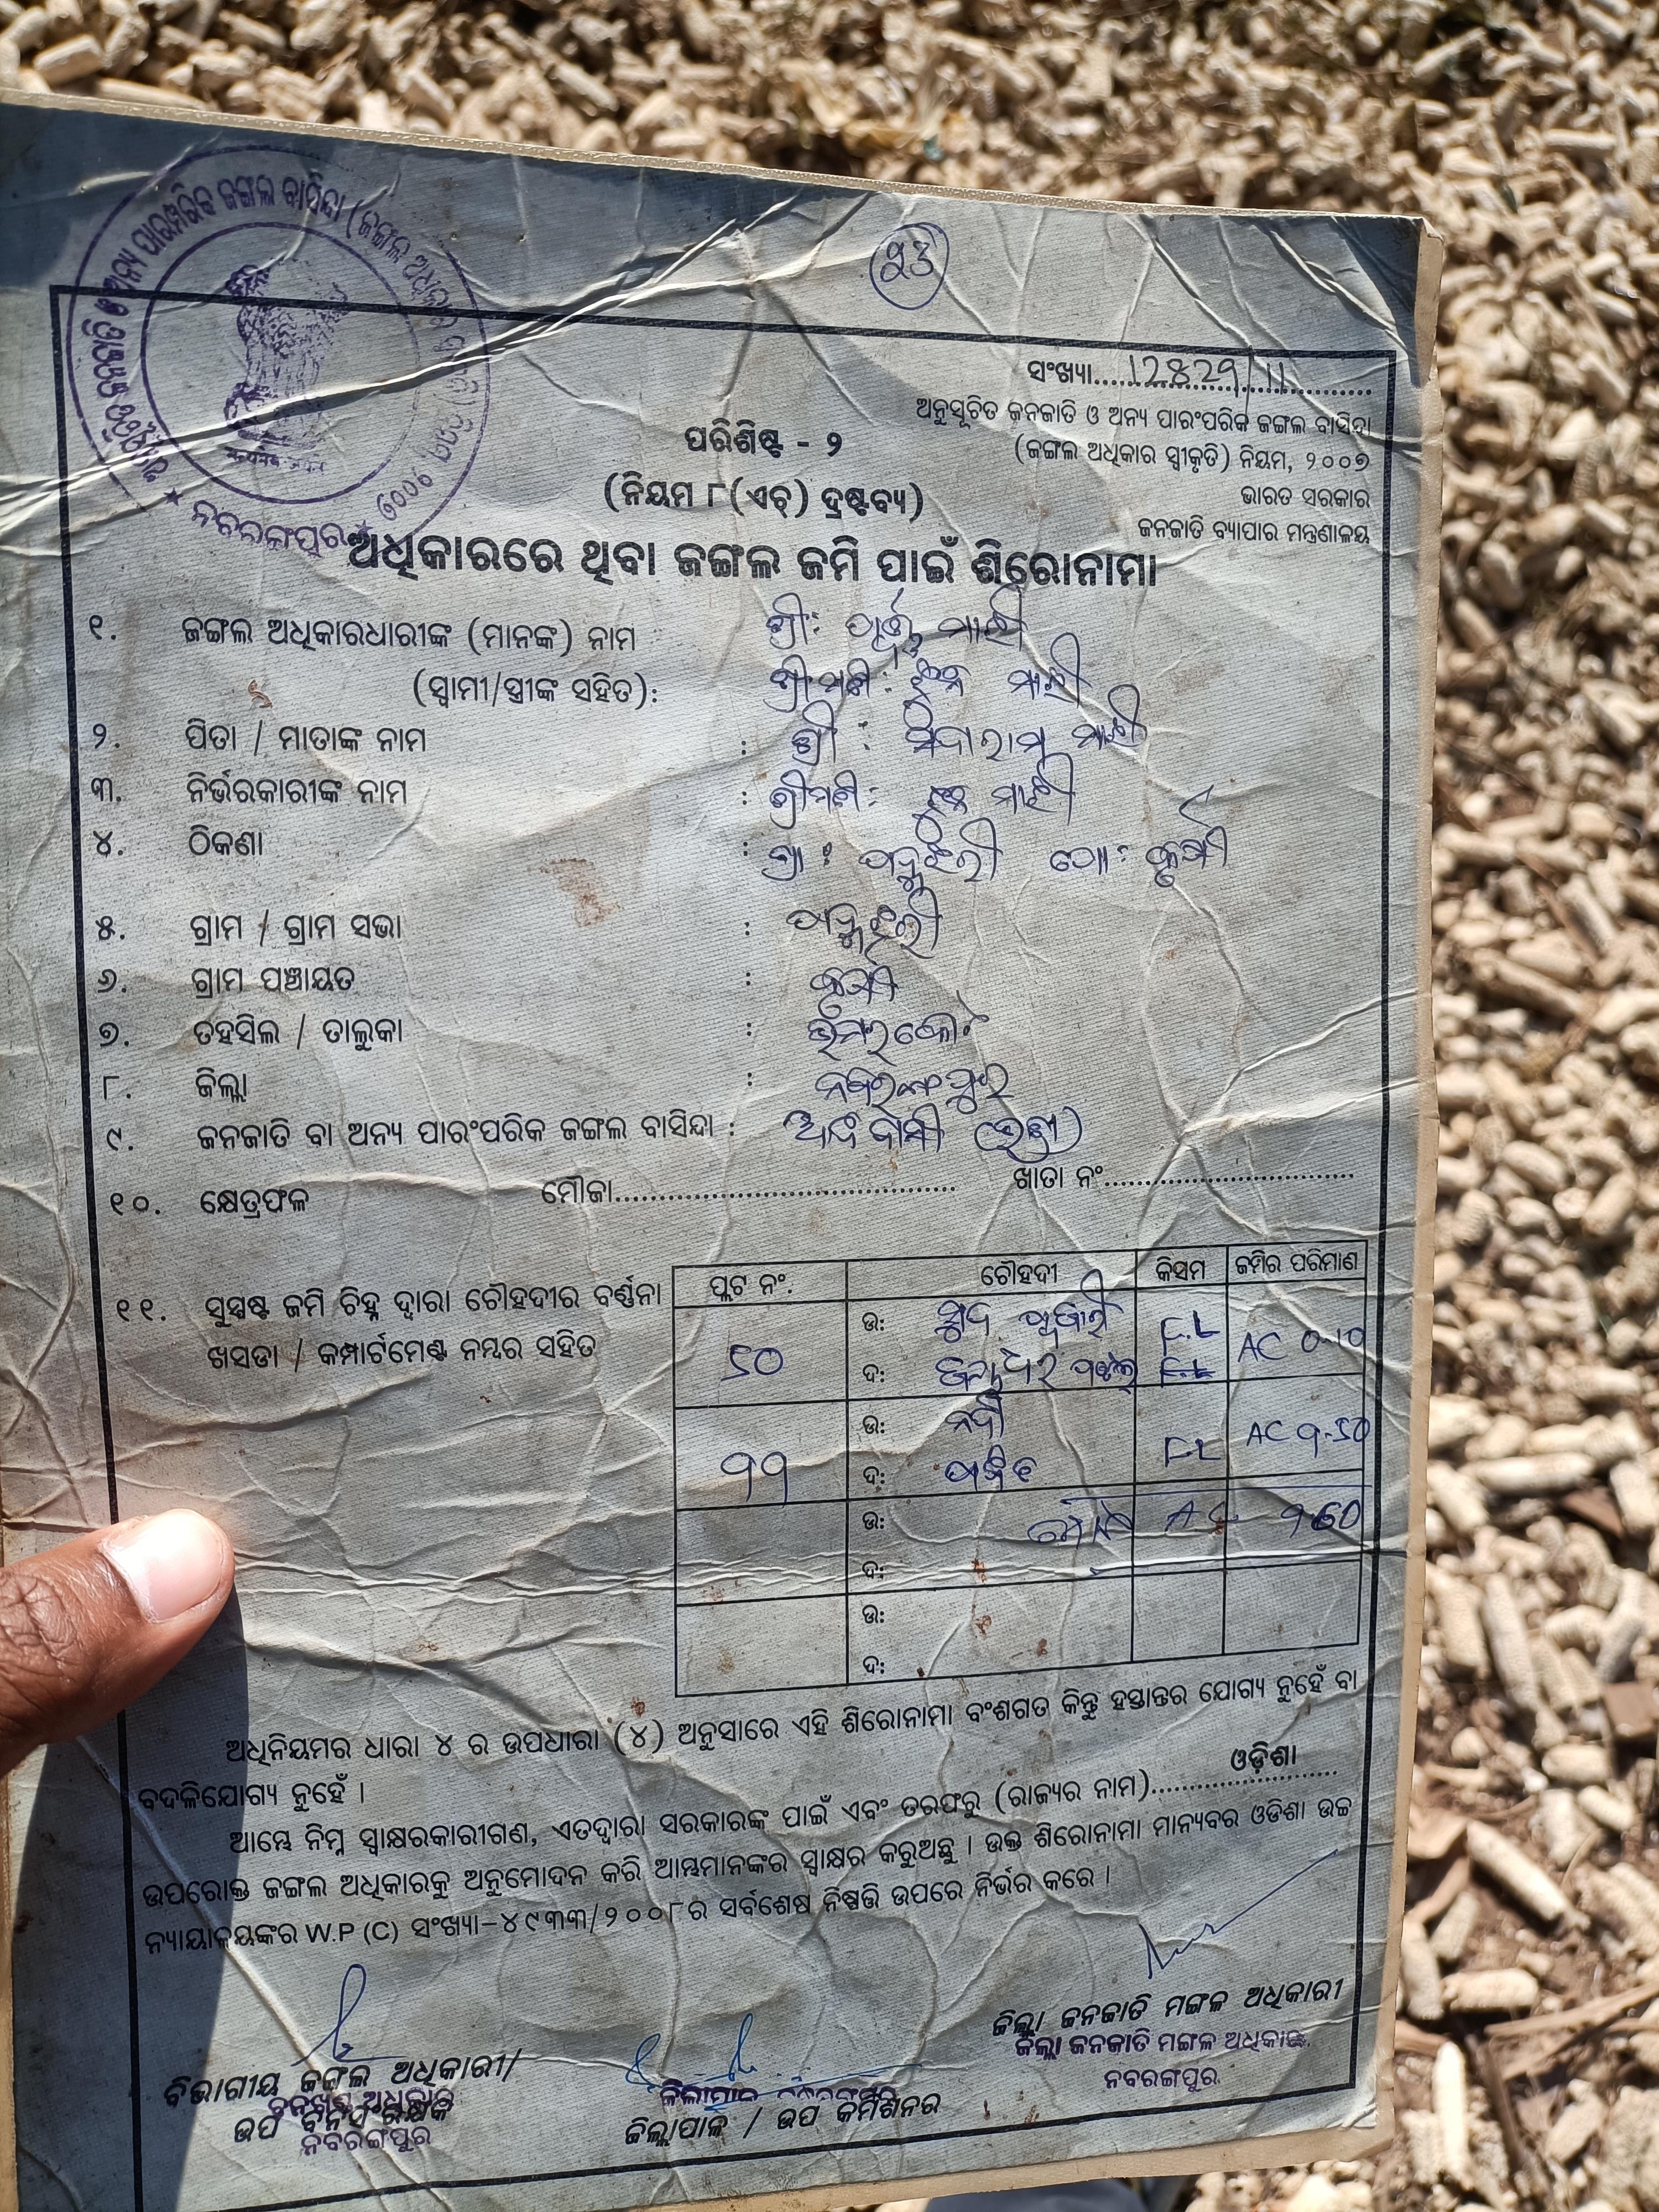 ଅନୁସୂଚିତ ଜନଜାତି ଓ ଅନ୍ୟ ପାରମ୍ପରିକ ଜଙ୍ଗଲ ବାସିନ୍ଦା (ଜଙ୍ଗଲ ଅଧିକାର
★ ନବରଙ୍ଗପୁର ★
୫୬
ସଂଖ୍ୟା....12829/11....
ଅନୁସୂଚିତ ଜନଜାତି ଓ ଅନ୍ୟ ପାରଂପରିକ ଜଙ୍ଗଲ ବାସିନ୍ଦା
(ଜଙ୍ଗଲ ଅଧିକାର ସ୍ୱୀକୃତି) ନିୟମ, ୨୦୦୭
ଭାରତ ସରକାର
ଜନଜାତି ବ୍ୟାପାର ମନ୍ତ୍ରଣାଳୟ
ପରିଶିଷ୍ଟ - ୨
(ନିୟମ ୮(ଏଚ୍) ଦ୍ରଷ୍ଟବ୍ୟ)
ଅଧିକାରରେ ଥିବା ଜଙ୍ଗଲ ଜମି ପାଇଁ ଶିରୋନାମା
୧. ଜଙ୍ଗଲ ଅଧିକାରଧାରୀଙ୍କ (ମାନଙ୍କ) ନାମ ଶ୍ରୀ: ମାଝୀ
(ସ୍ୱାମୀ/ସ୍ତ୍ରୀଙ୍କ ସହିତ): ଶ୍ରୀମତୀ: ମାଝୀ
୨. ପିତା / ମାତାଙ୍କ ନାମ : ଶ୍ରୀ : ମାଝୀ
୩. ନିର୍ଭରକାରୀଙ୍କ ନାମ : ଶ୍ରୀମତୀ: ମାଝୀ
୪. ଠିକଣା : ଗ୍ରା : ପୋ:
୫. ଗ୍ରାମ / ଗ୍ରାମ ସଭା :
୬. ଗ୍ରାମ ପଞ୍ଚାୟତ :
୭. ତହସିଲ / ତାଲୁକା : ଉମରକୋଟ
୮. ଜିଲ୍ଲା : ନବରଙ୍ଗପୁର
୯. ଜନଜାତି ବା ଅନ୍ୟ ପାରଂପରିକ ଜଙ୍ଗଲ ବାସିନ୍ଦା : ଆଦିବାସୀ
୧୦. କ୍ଷେତ୍ରଫଳ ମୌଜା............ ଖାତା ନଂ............
୧୧. ସୁସ୍ପଷ୍ଟ ଜମି ଚିହ୍ନ ଦ୍ୱାରା ଚୌହଦୀର ବର୍ଣ୍ଣନା
ଖସଡା / କମ୍ପାର୍ଟମେଣ୍ଟ ନମ୍ବର ସହିତ
ପ୍ଲଟ ନଂ. ଚୌହଦୀ କିସମ ଜମିର ପରିମାଣ
50 ଉ: F.L AC 0-10
ଦ:
୨୨ ଉ: ନଦୀ F.L AC ୧-50
ଦ:
ଉ: ମୋଟ AC ୧60
ଦ:
ଉ:
ଦ:
ଅଧିନିୟମର ଧାରା ୪ ର ଉପଧାରା (୪) ଅନୁସାରେ ଏହି ଶିରୋନାମା ବଂଶଗତ କିନ୍ତୁ ହସ୍ତାନ୍ତର ଯୋଗ୍ୟ ନୁହେଁ ବା
ବଦଳିଯୋଗ୍ୟ ନୁହେଁ ।
ଆମ୍ଭେ ନିମ୍ନ ସ୍ୱାକ୍ଷରକାରୀଗଣ, ଏତଦ୍ୱାରା ସରକାରଙ୍କ ପାଇଁ ଏବଂ ତରଫରୁ (ରାଜ୍ୟର ନାମ)....ଓଡ଼ିଶା....
ଉପରୋକ୍ତ ଜଙ୍ଗଲ ଅଧିକାରକୁ ଅନୁମୋଦନ କରି ଆମ୍ଭମାନଙ୍କର ସ୍ୱାକ୍ଷର କରୁଅଛୁ । ଉକ୍ତ ଶିରୋନାମା ମାନ୍ୟବର ଓଡିଶା ଉଚ୍ଚ
ନ୍ୟାୟାଳୟଙ୍କର W.P (C) ସଂଖ୍ୟା–୪୯୩୩/୨୦୦୮ର ସର୍ବଶେଷ ନିଷ୍ପତ୍ତି ଉପରେ ନିର୍ଭର କରେ ।
ଜିଲ୍ଲା ଜନଜାତି ମଙ୍ଗଳ ଅଧିକାରୀ
ଜିଲ୍ଲା ଜନଜାତି ମଙ୍ଗଳ ଅଧିକାରୀ
ନବରଙ୍ଗପୁର
ବିଭାଗୀୟ ଜଙ୍ଗଲ ଅଧିକାରୀ/
ଉପ ବନ ସଂରକ୍ଷକ
ନବରଙ୍ଗପୁର
ଜିଲ୍ଲାପାଳ ନବରଙ୍ଗପୁର
ଜିଲ୍ଲାପାଳ / ଉପ କମିଶନର